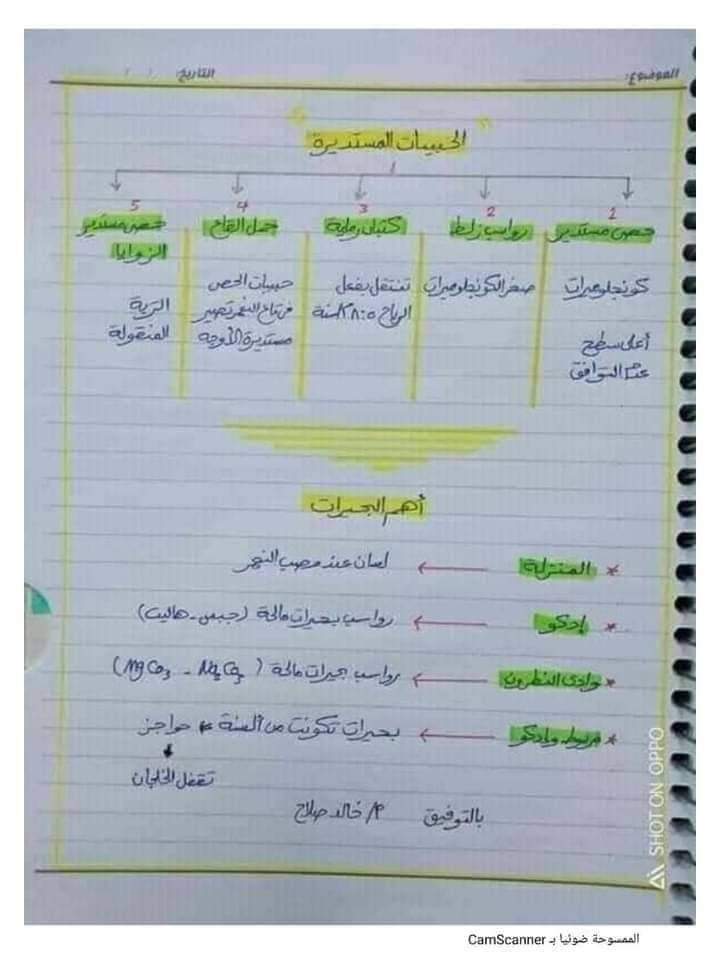 الموضوع:
التاريخ: / /
الحبيبات المستديرة
1
حصى مستدير
كونجلوميرات
أعلى سطح
عدم التوافق
2
رواسب زلط
صخر الكونجلوميرات
3
كثبان رملية
تنتقل بفعل
الرياح 5 : 8 م/سنة
4
حمل القاع
حبيبات الحصى
فى قاع النهر تصير
مستديرة الأوجه
5
حصى مستدير
الزوايا
التربة
المنقولة
أهم البحيرات
* المنزلة ← لسان عند مصب النهر
* إدكو ← رواسب بحيرات مالحة (جبس - هاليت)
* وادى النطرون ← رواسب بحيرات مالحة (
* مريوط وإدكو ← بحيرات تكونت من ألسنة * حواجز
تقفل الخلجان
بالتوفيق م/ خالد صلاح
SHOT ON OPPO
الممسوحة ضوئيا بـ CamScanner